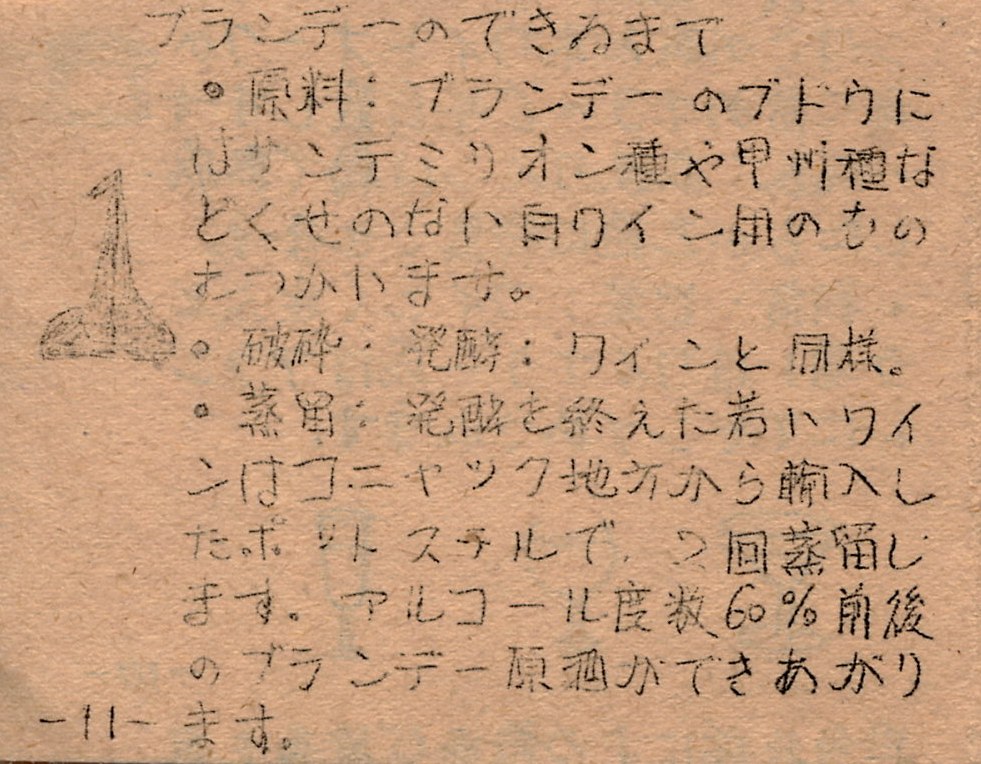 ブランデーのできるまで
◦ 原料: ブランデーのブドウに
はサンテミリオン種や甲州種な
どくせのない白ワイン用のもの
をつかいます。
◦ 破砕: 発酵: ワインと同様。
◦ 蒸留: 発酵を終えた若いワイ
ンはコニャック地方から輸入し
たポットスチルで、2回蒸留し
ます。アルコール度数60%前後
のブランデー原酒ができあがり
-11- ます。